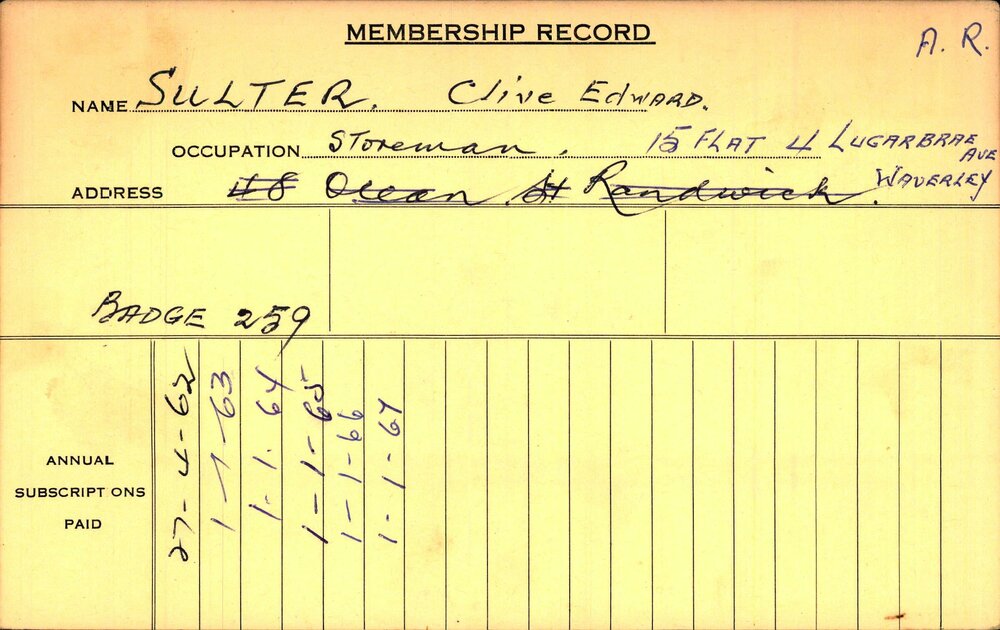 MEMBERSHIP RECORD
A. R.
NAME SULTER. Clive Edward.
OCCUPATION Storeman. 15 FLAT 4 LUGARBRAE AVE
WAVERLEY
ADDRESS 48 Ocean St Randwick.
BADGE 259
ANNUAL
SUBSCRIPT ONS
PAID
27-4-62
1-1-63
1-1-64
1-1-65
1-1-66
1-1-67